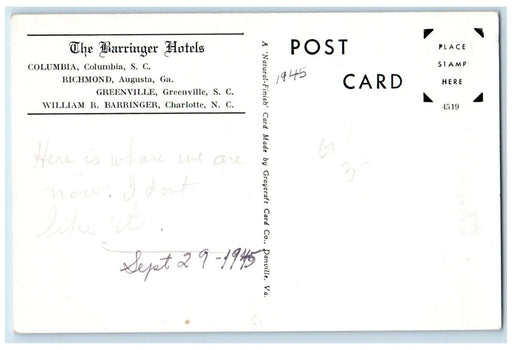 The Barringer Hotels
COLUMBIA, Columbia, S. C.
RICHMOND, Augusta, Ga.
GREENVILLE, Greenville, S. C.
WILLIAM R. BARRINGER, Charlotte, N. C.
Here is whare we are
now. I dont
like it.
Sept 29-1945
A 'Natural-Finish' Card Made by Graycraft Card Co., Danville, Va.
POST
CARD
1945
PLACE
STAMP
HERE
4519